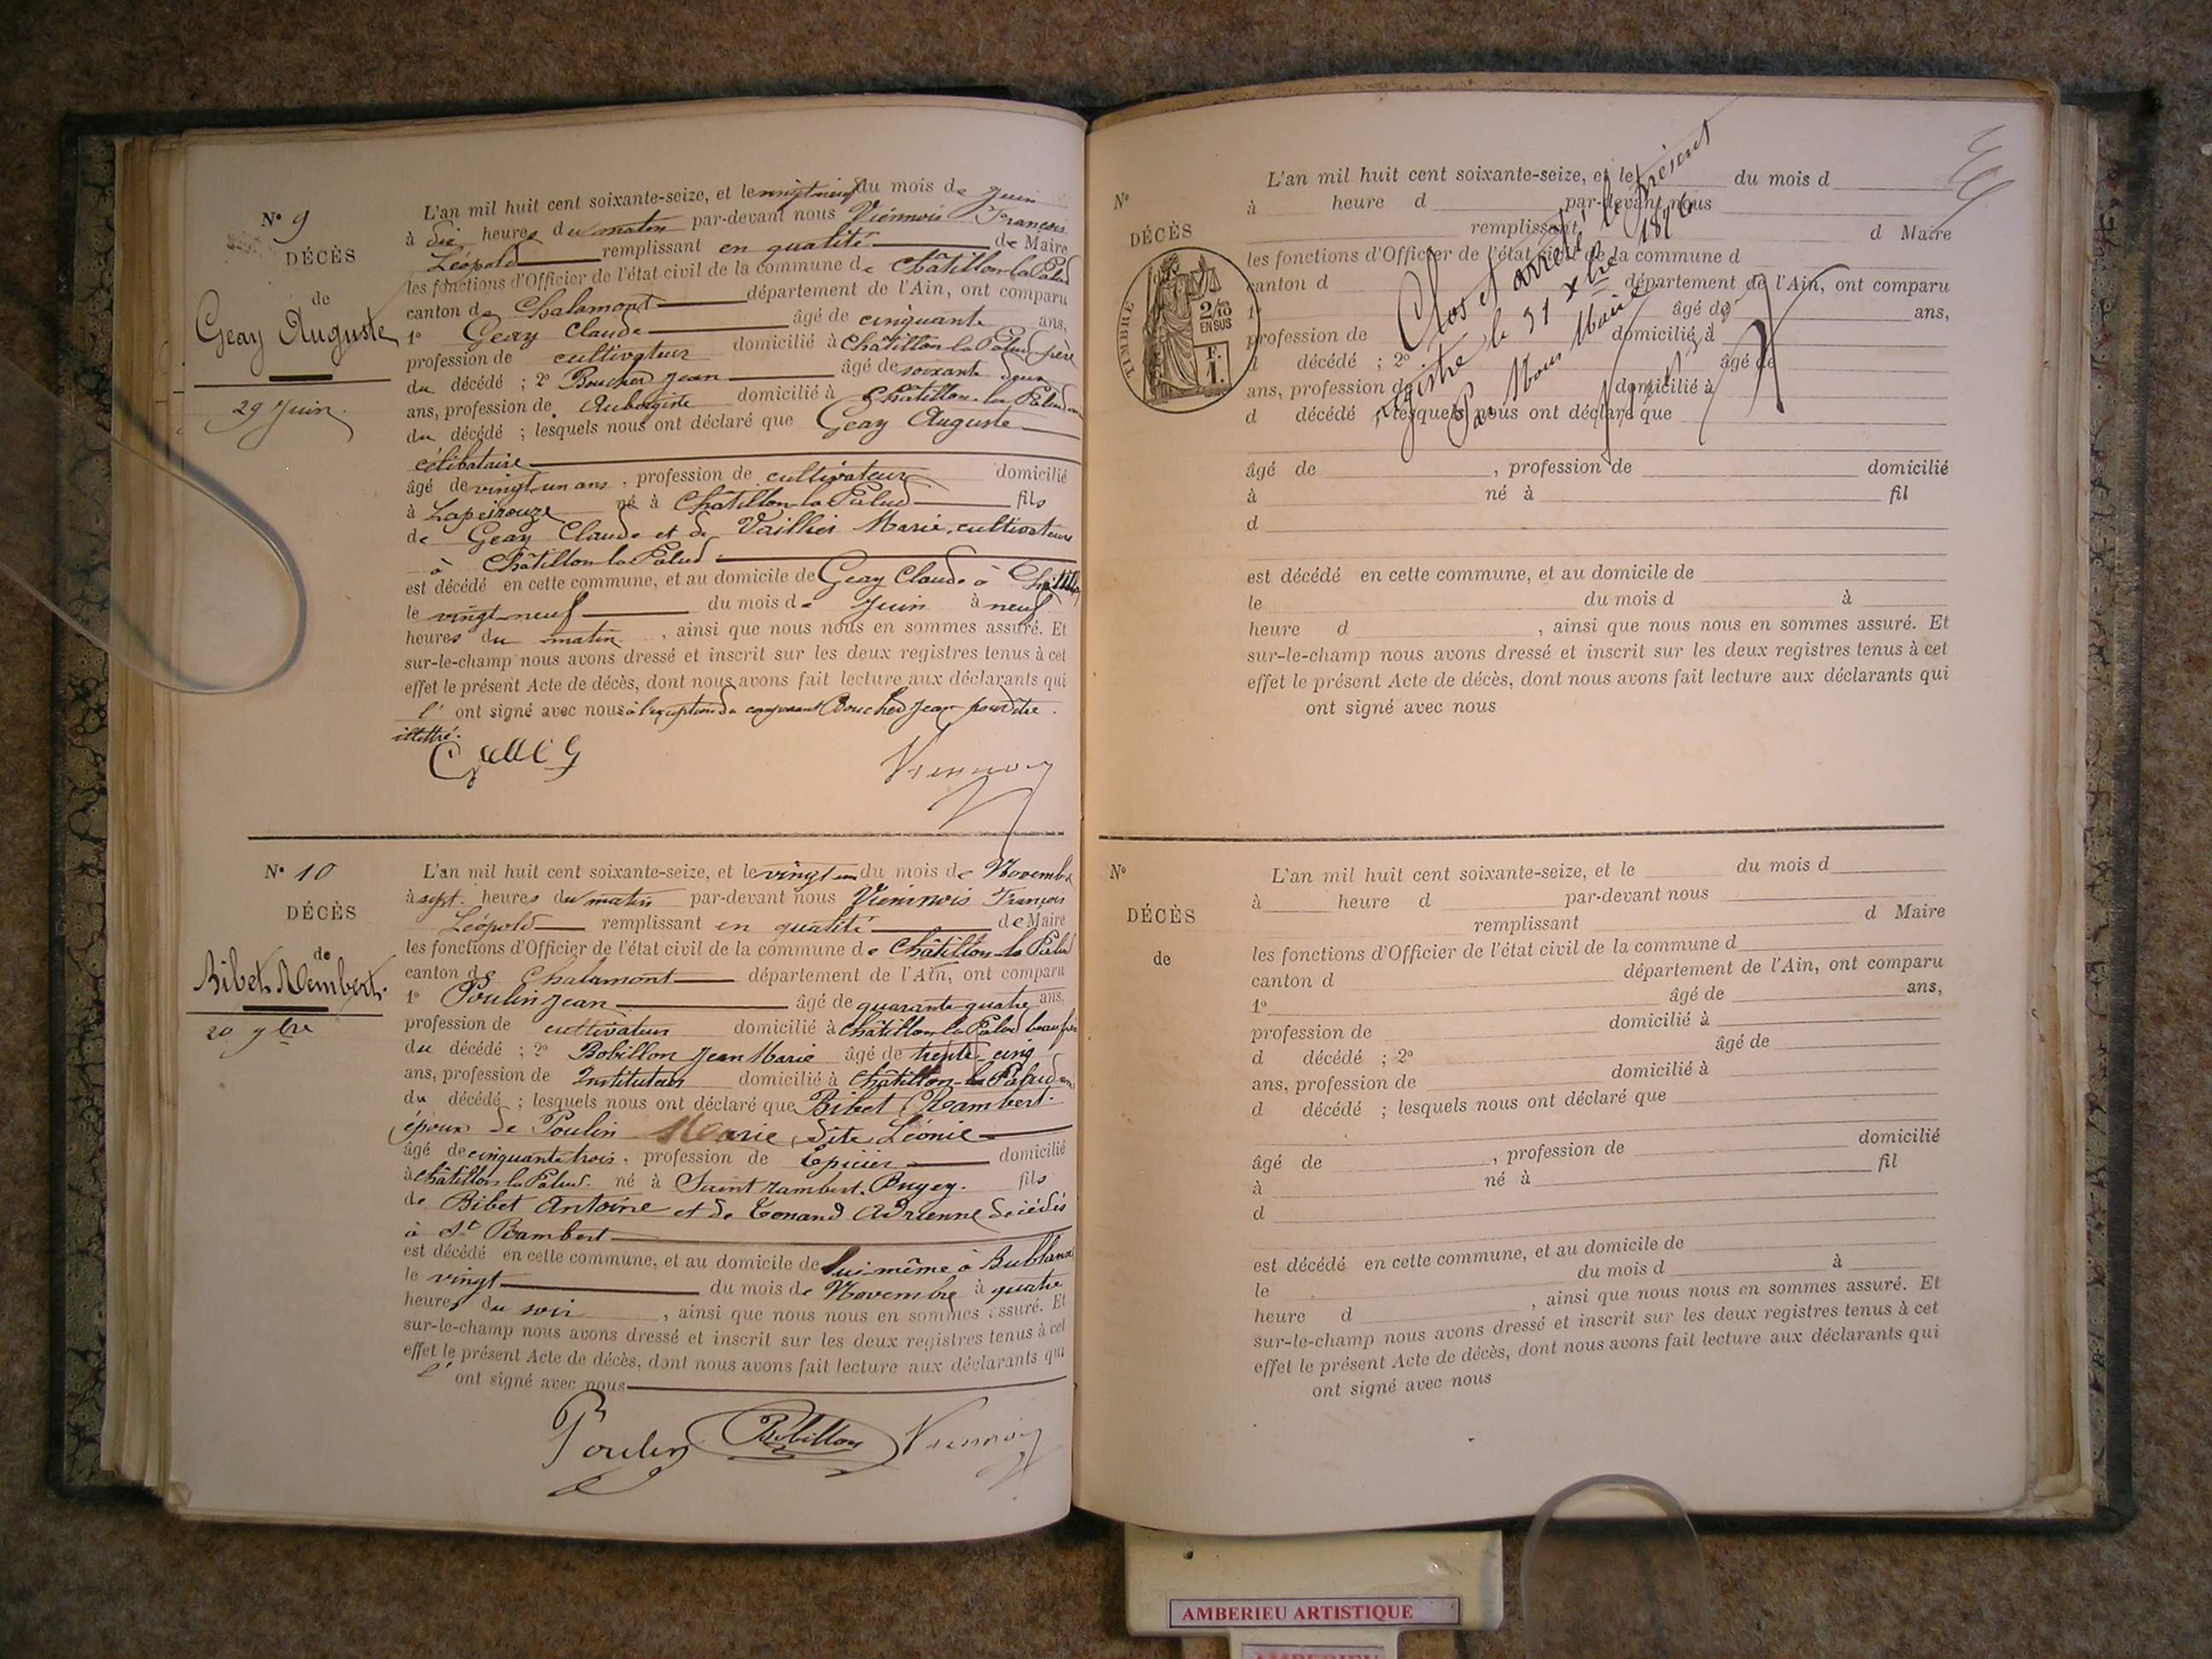 N° 9
DÉCÈS
de
Geay Auguste
29 Juin
L'an mil huit cent soixante-seize, et le vingt neuf du mois de Juin
à dix heures du matin par-devant nous Viennois François
Léopold remplissant en qualité de Maire
les fonctions d'Officier de l'état civil de la commune de Châtillon la Palud
canton de Chalamont département de l'Ain, ont comparu
1° Geay Claude âgé de cinquante ans,
profession de cultivateur domicilié à Châtillon la Palud père
du décédé ; 2° Boucher Jean âgé de soixante deux
ans, profession de Aubergiste domicilié à Châtillon-la Palud
du décédé ; lesquels nous ont déclaré que Geay Auguste
célibataire
âgé de vingt un ans, profession de cultivateur domicilié
à Lapeirouze né à Châtillon-la Palud fils
de Geay Claude et de Vaillier Marie, cultivateurs
à Châtillon la Palud
est décédé en cette commune, et au domicile de Geay Claude à
le vingt-neuf du mois de Juin à neuf
heures du matin, ainsi que nous nous en sommes assuré. Et
sur-le-champ nous avons dressé et inscrit sur les deux registres tenus à cet
effet le présent Acte de décès, dont nous avons fait lecture aux déclarants qui
l' ont signé avec nous à l'exception du comparant Boucher Jean pour être
illettré.
Viennois
N° 10
DÉCÈS
de
Bibet Rembert.
20 9bre
L'an mil huit cent soixante-seize, et le vingt un du mois de Novembre
à sept heures du matin par-devant nous Viennois François
Léopold remplissant en qualité de Maire
les fonctions d'Officier de l'état civil de la commune de Châtillon-la Palud
canton de Chalamont département de l'Ain, ont comparu
1° Poulin Jean âgé de quarante-quatre ans,
profession de cultivateur domicilié à Châtillon la Palud beau frère
du décédé ; 2° Bobillon Jean Marie âgé de trente-cinq
ans, profession de Instituteur domicilié à Châtillon-la Palud
du décédé ; lesquels nous ont déclaré que Bibet Rambert.
époux de Poulin Marie, dite Léonie
âgé de cinquante trois, profession de Epicier domicilié
à Châtillon la Palud. né à Saint Rambert. Bugey. fils
de Bibet Antoine et de Tenand Adrienne décédés
à St Rambert
est décédé en cette commune, et au domicile de lui-même à Bublane
le vingt du mois de Novembre à quatre
heures du soir, ainsi que nous nous en sommes assuré. Et
sur-le-champ nous avons dressé et inscrit sur les deux registres tenus à cet
effet le présent Acte de décès, dont nous avons fait lecture aux déclarants qui
l' ont signé avec nous
Poulin Bobillon Viennois
N°
DÉCÈS
TIMBRE
2/10
EN SUS
F.
1.
L'an mil huit cent soixante-seize, et le du mois d
à heure d par-devant nous
remplissant d Maire
les fonctions d'Officier de l'état civil de la commune d
canton d département de l'Ain, ont comparu
1° âgé de ans,
profession de domicilié à
d décédé ; 2° âgé de
ans, profession de domicilié à
d décédé ; lesquels nous ont déclaré que
Clos et arrêté le présent
registre le 31 xbre 1876
Par Nous Maire
âgé de , profession de domicilié
à né à fil
d
est décédé en cette commune, et au domicile de
le du mois d à
heure d , ainsi que nous nous en sommes assuré. Et
sur-le-champ nous avons dressé et inscrit sur les deux registres tenus à cet
effet le présent Acte de décès, dont nous avons fait lecture aux déclarants qui
ont signé avec nous
N°
DÉCÈS
de
L'an mil huit cent soixante-seize, et le du mois d
à heure d par-devant nous
remplissant d Maire
les fonctions d'Officier de l'état civil de la commune d
canton d département de l'Ain, ont comparu
1° âgé de ans,
profession de domicilié à
d décédé ; 2° âgé de
ans, profession de domicilié à
d décédé ; lesquels nous ont déclaré que
âgé de , profession de domicilié
à né à fil
d
est décédé en cette commune, et au domicile de
le du mois d à
heure d , ainsi que nous nous en sommes assuré. Et
sur-le-champ nous avons dressé et inscrit sur les deux registres tenus à cet
effet le présent Acte de décès, dont nous avons fait lecture aux déclarants qui
ont signé avec nous
AMBERIEU ARTISTIQUE
AMBERIEU